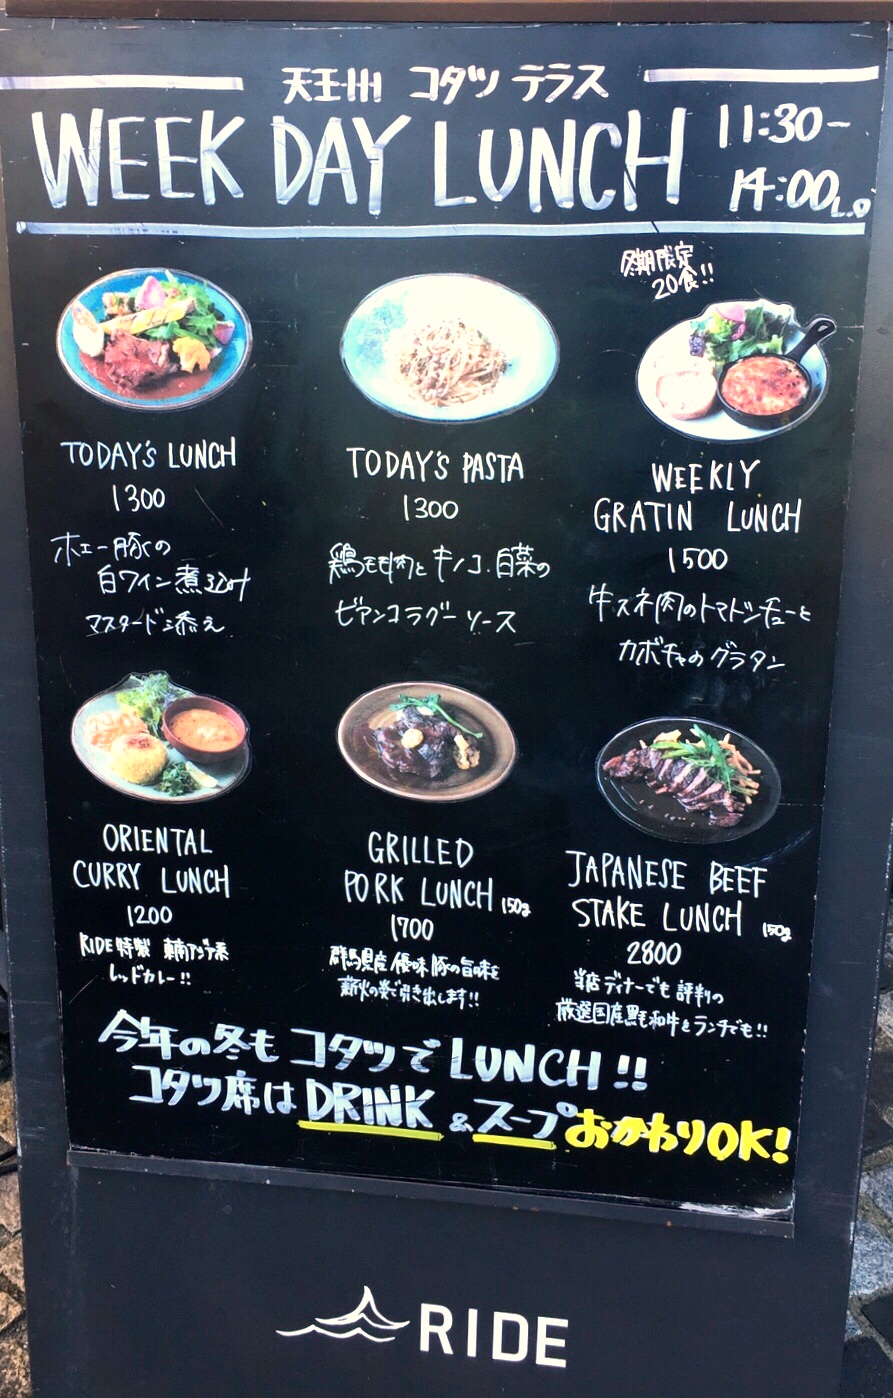 天王州 コダツ テラス
WEEK DAY LUNCH
11:30-
14:00L.O
冬期限定
20食!!
TODAY'S LUNCH
1300
ホエー豚の
白ワイン煮込み
マスタード添え
TODAY'S PASTA
1300
鶏モモ肉とキノコ、白菜の
ビアンコラグーソース
WEEKLY
GRATIN LUNCH
1500
牛スネ肉のトマトシチューと
カボチャのグラタン
ORIENTAL
CURRY LUNCH
1200
RIDE特製 東南アジア系
レッドカレー!!
GRILLED
PORK LUNCH 150g
1700
群馬県産優味豚の旨味を
薪火の炎で引き出します!!
JAPANESE BEEF
STAKE LUNCH 150g
2800
当店ディナーでも評判の
厳選国産黒毛和牛をランチでも!!
今年の冬もコタツでLUNCH!!
コタツ席はDRINK&スープおかわりOK!
RIDE